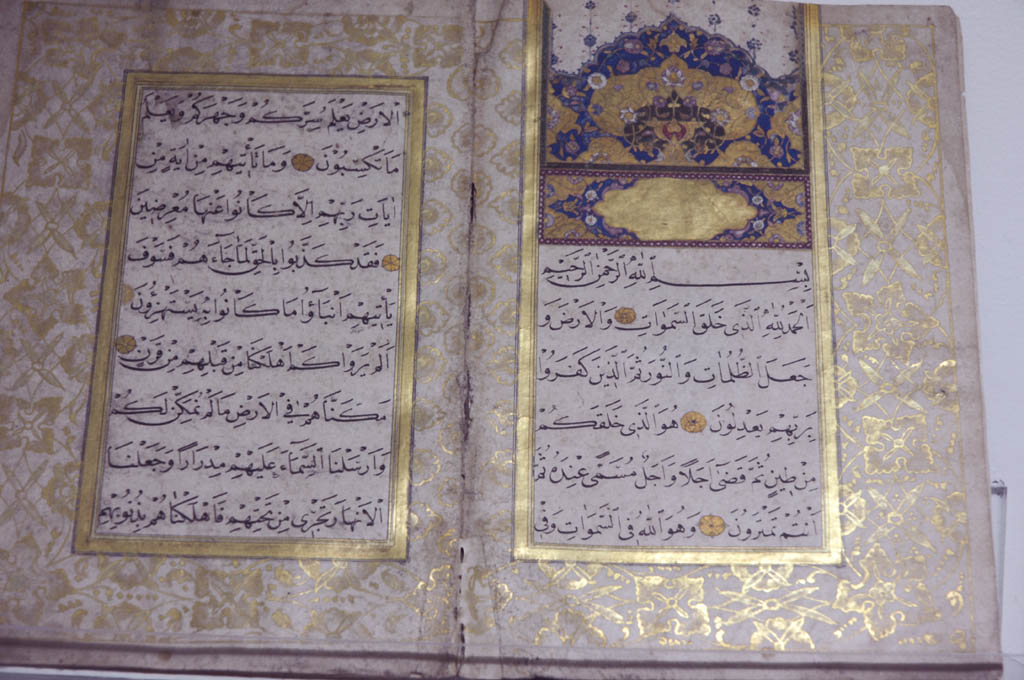 بِسْمِ اللّٰهِ الرَّحْمٰنِ الرَّحِيمِ
اَلْحَمْدُ لِلّٰهِ الَّذِى خَلَقَ السَّمٰوَاتِ وَالْاَرْضَ وَ
جَعَلَ الظُّلُمَاتِ وَالنُّورَ ثُمَّ الَّذِينَ كَفَرُوا
بِرَبِّهِمْ يَعْدِلُونَ هُوَ الَّذِى خَلَقَكُمْ
مِنْ طِينٍ ثُمَّ قَضٰى اَجَلًا وَاَجَلٌ مُسَمًّى عِنْدَهُ ثُمَّ
اَنْتُمْ تَمْتَرُونَ وَهُوَ اللّٰهُ فِى السَّمٰوَاتِ وَفِى
الْاَرْضِ يَعْلَمُ سِرَّكُمْ وَجَهْرَكُمْ وَيَعْلَمُ
مَا تَكْسِبُونَ وَمَا تَأْتِيهِمْ مِنْ اٰيَةٍ مِنْ
اٰيَاتِ رَبِّهِمْ اِلَّا كَانُوا عَنْهَا مُعْرِضِينَ
فَقَدْ كَذَّبُوا بِالْحَقِّ لَمَّا جَاۤءَهُمْ فَسَوْفَ
يَأْتِيهِمْ اَنْبَاۤؤُا مَا كَانُوا بِهِ يَسْتَهْزِؤُنَ
اَلَمْ يَرَوْا كَمْ اَهْلَكْنَا مِنْ قَبْلِهِمْ مِنْ قَرْنٍ
مَكَّنَّاهُمْ فِى الْاَرْضِ مَا لَمْ نُمَكِّنْ لَكُمْ
وَاَرْسَلْنَا السَّمَاۤءَ عَلَيْهِمْ مِدْرَارًا وَجَعَلْنَا
الْاَنْهَارَ تَجْرِى مِنْ تَحْتِهِمْ فَاَهْلَكْنَاهُمْ بِذُنُوبِهِمْ